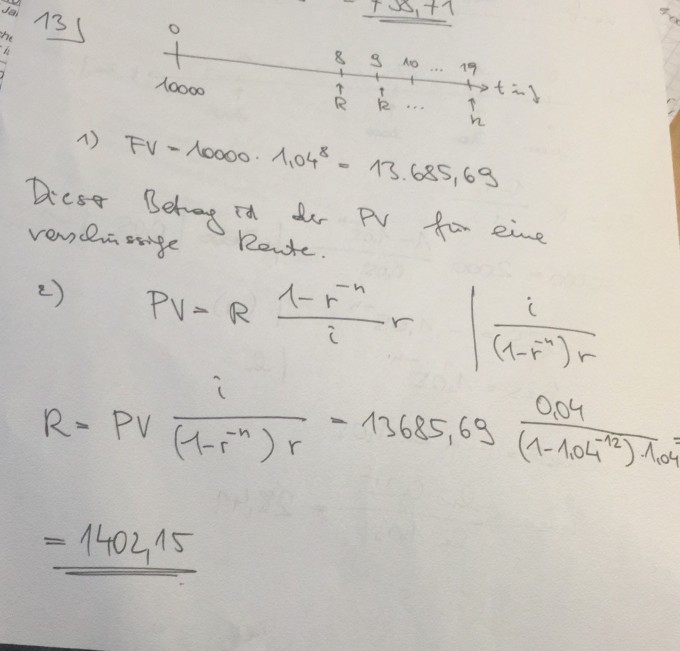 738,71
13)
0
8 9 10 ... 19 t in J
10000 R R ... R
1) FV = 10000 · 1,04⁸ = 13.685,69
Dieser Betrag ist der PV für eine
vorschüssige Rente.
2) PV = R (1-r⁻ⁿ)/i r | i/((1-r⁻ⁿ) r)
R = PV i/((1-r⁻ⁿ) r) = 13685,69 0,04/((1-1,04⁻¹²)·1,04) =
= 1402,15